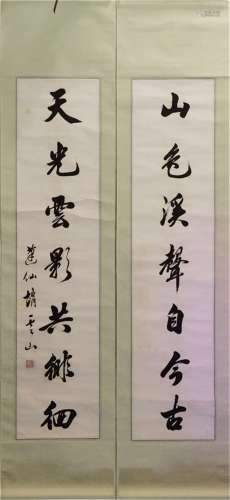 山色溪聲自今古
天光雲影共徘徊
蓬仙趙雲山